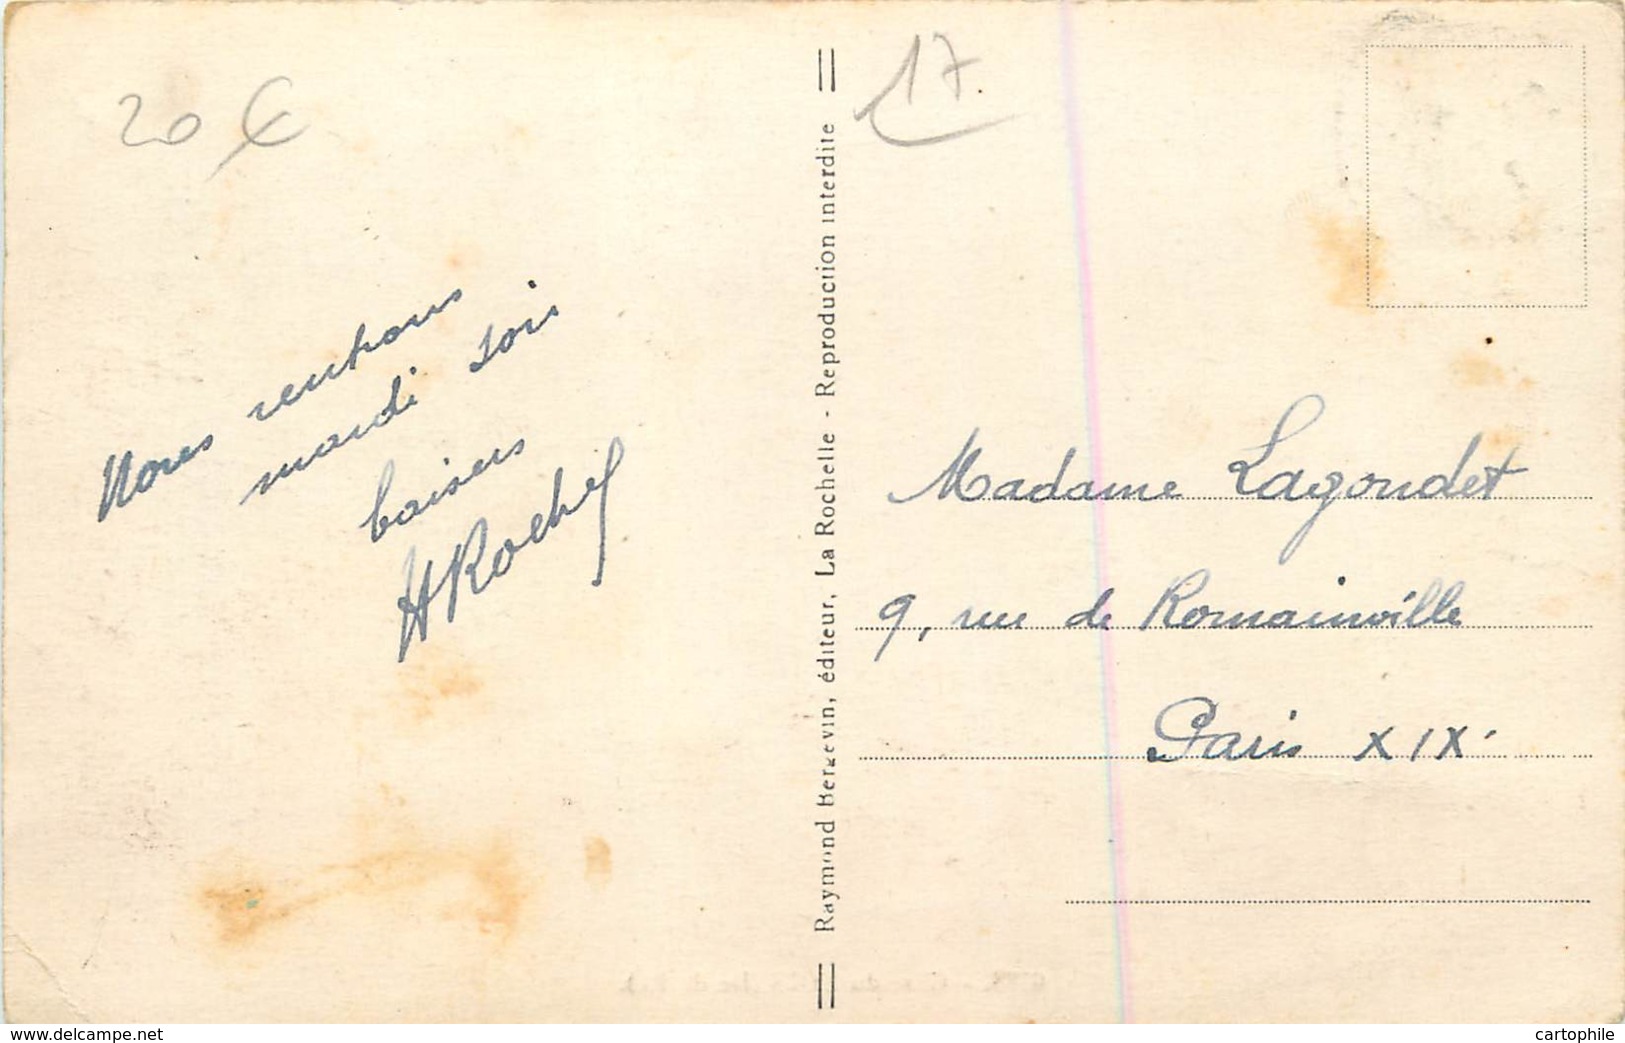 20 €
17.
Nous rentrons
mardi soir
baisers
Raymond Bergevin, éditeur, La Rochelle - Reproduction interdite
Madame Lagoudet
9, rue de Romainville
Paris XIX.
www.delcampe.net
cartophile